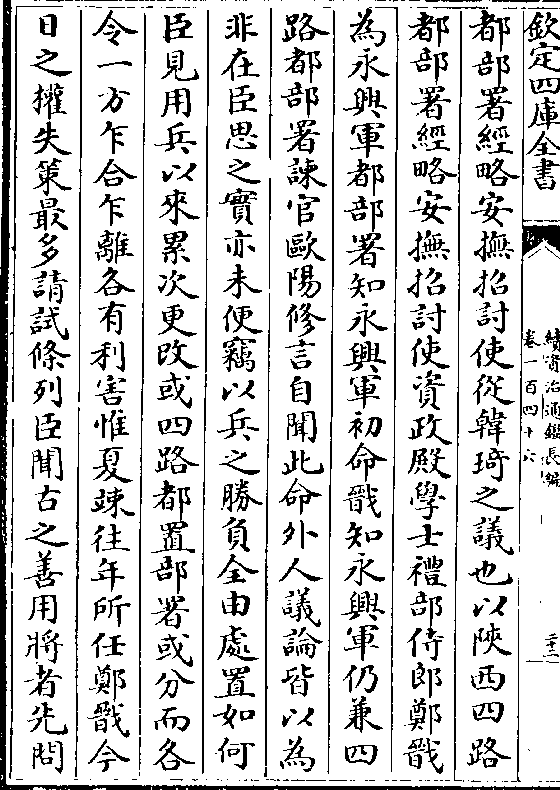 欽定四庫全書
續資治通鑑長編
卷一百四十六
二十二
都部署經略安撫招討使從韓琦之議也以陝西四路
都部署經略安撫招討使資政殿學士禮部侍郎鄭戩
為永興軍都部署知永興軍初命戩知永興軍仍兼四
路都部署諫官歐陽修言自聞此命外人議論皆以為
非在臣思之實亦未便竊以兵之勝負全由處置如何
臣見用兵以來累次更改或四路都置部署或分而各
令一方乍合乍離各有利害惟夏竦往年所任鄭戩今
日之權失策最多請試條列臣聞古之善用將者先問